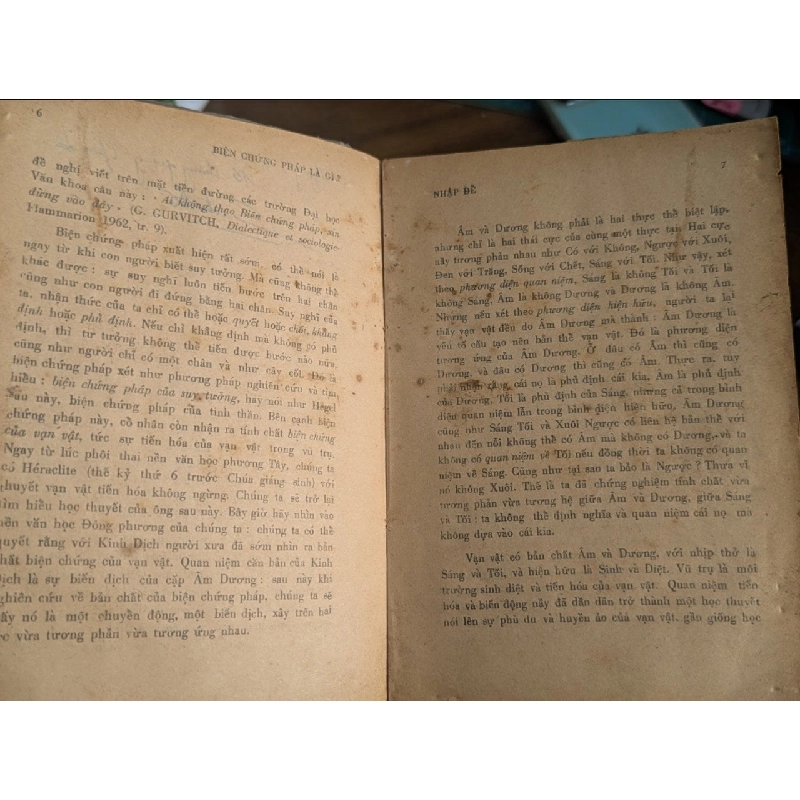 6
BIỆN CHỨNG PHÁP LÀ GÌ?
đề nghị viết trên mặt tiền đường các trường Đại học
Văn khoa câu này : « Ai không thạo Biện chứng pháp, xin
đừng vào đây » (G. GURVITCH, Dialectique et sociologie
Flammarion 1962, tr. 9).
Biện chứng pháp xuất hiện rất sớm, có thể nói là
ngay từ khi con người biết suy tưởng. Mà cũng không thể
khác được : sự suy nghĩ luôn tiến bước trên hai chân
cũng như con người đi đứng bằng hai chân. Suy nghĩ của
ta, nhận thức của ta chỉ có thể hoặc quyết hoặc chất, khẳng
định hoặc phủ định. Nếu chỉ khẳng định mà không có phủ
định, thì tư tưởng không thể tiến được bước nào nữa,
cũng như người chỉ có một chân và như cây cột. Đó là
biện chứng pháp xét như phương pháp nghiên cứu và tìm
hiểu : biện chứng pháp của suy tưởng, hay nói như Hégel
sau này, biện chứng pháp của tinh thần. Bên cạnh biện
chứng pháp này, cổ nhân còn nhận ra tính chất biện chứng
của vạn vật, tức sự tiến hóa của vạn vật trong vũ trụ.
Ngay từ lúc phôi thai nền văn học phương Tây, chúng ta
có Héraclite (thế kỷ thứ 6 trước Chúa giáng sinh) với
thuyết vạn vật tiến hóa không ngừng. Chúng ta sẽ trở lại
tìm hiểu học thuyết của ông sau này. Bây giờ hãy nhìn vào
nền văn học Đông phương của chúng ta : chúng ta có thể
quyết rằng với Kinh Dịch người xưa đã sớm nhìn ra bản
chất biện chứng của vạn vật. Quan niệm căn bản của Kinh
Dịch là sự biến dịch của cặp Âm Dương : sau này khi
nghiên cứu về bản chất của biện chứng pháp, chúng ta sẽ
thấy nó là một chuyển động, một biến dịch, xảy trên hai
cực vừa tương phản vừa tương ứng nhau.
NHẬP ĐỀ
7
Âm và Dương không phải là hai thực thể biệt lập,
nhưng chỉ là hai thái cực của cùng một thực tại. Hai cực
này tương phản nhau như Có với Không, Ngược với Xuôi,
Đen với Trắng, Sống với Chết, Sáng với Tối. Như vậy, xét
theo phương diện quan niệm, Sáng là không Tối và Tối là
không Sáng, Âm là không Dương và Dương là không Âm.
Nhưng nếu xét theo phương diện hiện hữu, người ta lại
thấy vạn vật đều do Âm Dương mà thành : Âm Dương là
yếu tố cấu tạo nên bản thể vạn vật. Đó là phương diện
tương ứng của Âm Dương. Ở đâu có Âm thì cũng có
Dương, và đâu có Dương thì cũng có Âm. Thực ra, tuy
phải nhận rằng cái nọ là phủ định cái kia, Âm là phủ định
của Dương, Tối là phủ định của Sáng, nhưng cả trong bình
diện quan niệm lẫn trong bình diện hiện hữu, Âm Dương
cũng như Sáng Tối và Xuôi Ngược có liên hệ bản thể với
nhau đến nỗi không thể có Âm mà không có Dương, và ta
không có quan niệm về Tối nếu đồng thời ta không có quan
niệm về Sáng. Cũng như tại sao ta bảo là Ngược? Thưa vì
nó không Xuôi. Thế là ta đã chứng nghiệm tính chất vừa
tương phản vừa tương hệ giữa Âm và Dương, giữa Sáng
và Tối : ta không thể định nghĩa và quan niệm cái nọ mà
không dựa vào cái kia.
Vạn vật có bản chất Âm và Dương, với nhịp thở là
Sáng và Tối, và hiện hữu là Sinh và Diệt. Vũ trụ là môi
trường sinh diệt và tiến hóa của vạn vật. Quan niệm tiến
hóa và biến động này đã dần dần trở thành một học thuyết
nói lên sự phù du và huyền ảo của vạn vật, gần giống học